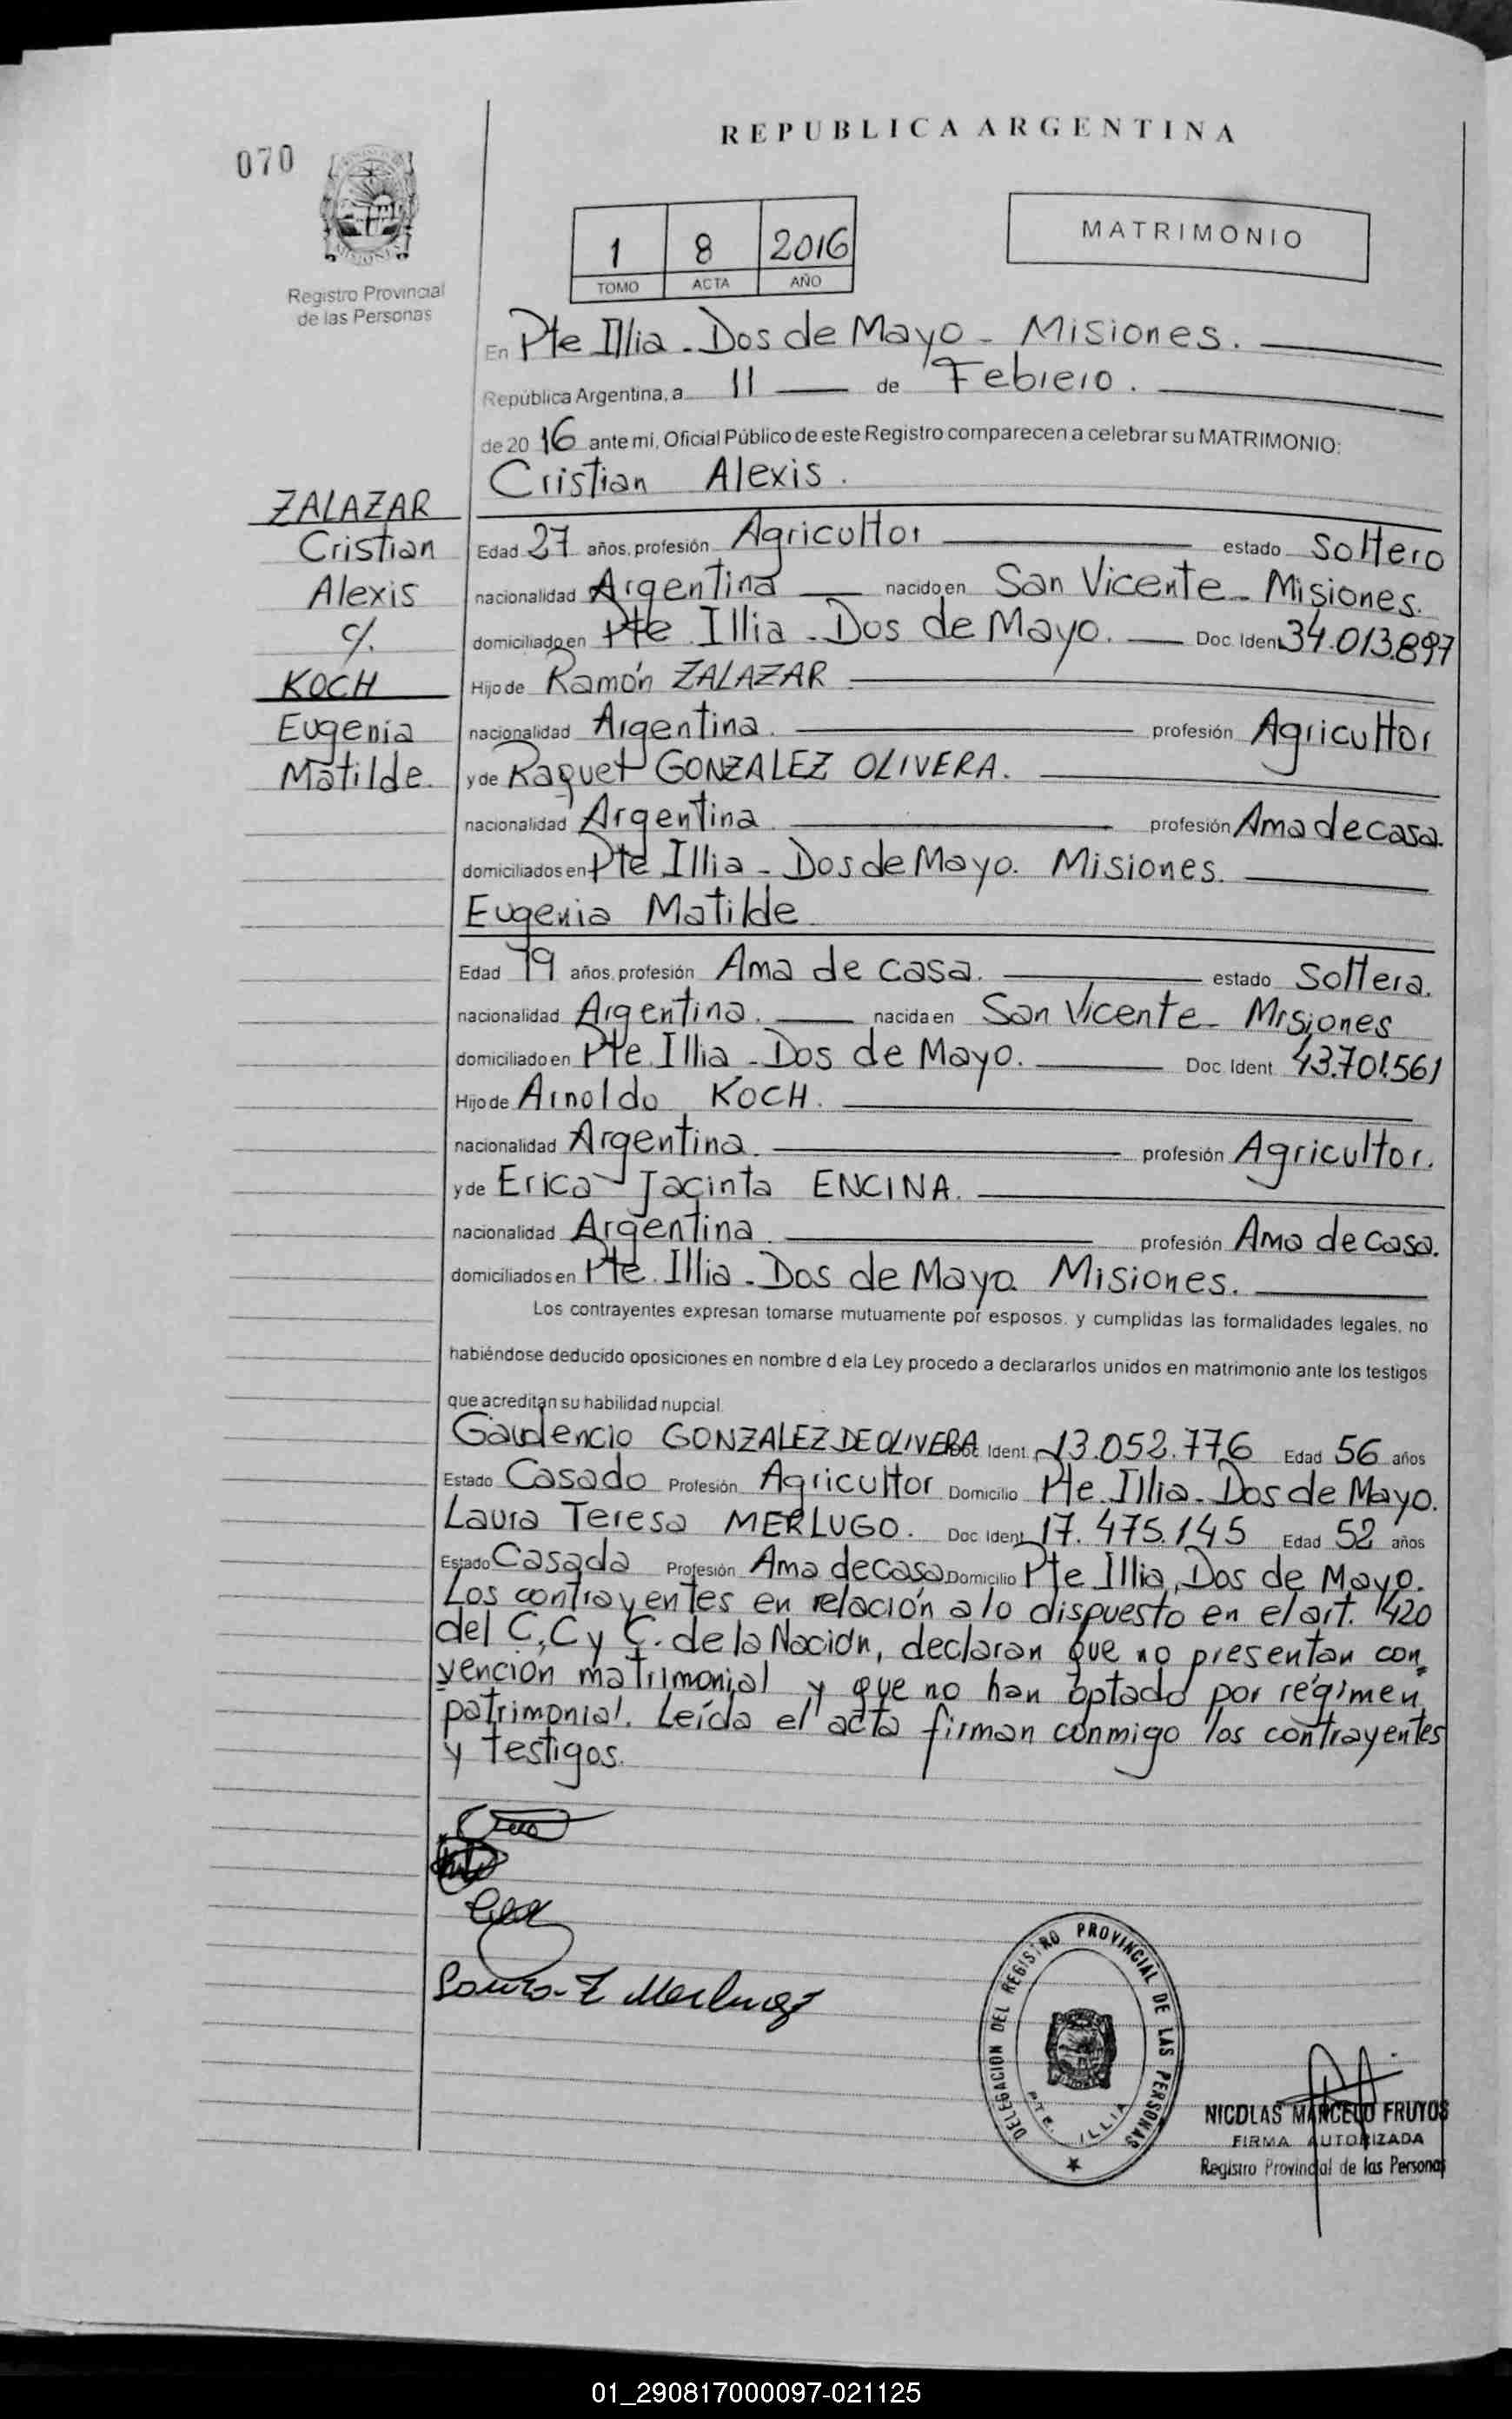 REPUBLICA ARGENTINA
070
MATRIMONIO
1 8 2016
TOMO ACTA AÑO
Registro Provincial
de las Personas
En Pte Illia - Dos de Mayo - Misiones.
República Argentina, a 11 de Febrero.
de 20 16 ante mi, Oficial Público de este Registro comparecen a celebrar su MATRIMONIO:
Cristian Alexis.
ZALAZAR
Cristian
Alexis
c/.
KOCH
Eugenia
Matilde.
Edad 27 años, profesión Agricultor estado Soltero
nacionalidad Argentina nacido en San Vicente - Misiones.
domiciliado en Pte Illia - Dos de Mayo. Doc. Ident 34.013.897
Hijo de Ramón ZALAZAR
nacionalidad Argentina. profesión Agricultor
y de Raquel GONZALEZ OLIVERA.
nacionalidad Argentina profesión Ama de casa.
domiciliados en Pte Illia - Dos de Mayo. Misiones.
Eugenia Matilde
Edad 19 años, profesión Ama de casa. estado Soltera.
nacionalidad Argentina. nacida en San Vicente - Misiones
domiciliado en Pte. Illia - Dos de Mayo. Doc. Ident. 43.701.561
Hijo de Arnoldo KOCH.
nacionalidad Argentina. profesión Agricultor.
y de Erica Jacinta ENCINA.
nacionalidad Argentina profesión Ama de casa.
domiciliados en Pte. Illia - Dos de Mayo. Misiones.
Los contrayentes expresan tomarse mutuamente por esposos, y cumplidas las formalidades legales, no
habiéndose deducido oposiciones en nombre d ela Ley procedo a declararlos unidos en matrimonio ante los testigos
que acreditan su habilidad nupcial.
Gaudencio GONZALEZ DE OLIVERA Doc Ident. 13.052.776 Edad 56 años
Estado Casado Profesión Agricultor Domicilio Pte. Illia - Dos de Mayo.
Laura Teresa MERLUGO. Doc Ident 17.475.145 Edad 52 años
Estado Casada Profesión Ama de casa Domicilio Pte Illia, Dos de Mayo.
Los contrayentes en relación a lo dispuesto en el art. 420
del C,C y C. de la Nación, declaran que no presentan con
vención matrimonial y que no han optado por régimen
patrimonial. Leída el acta firman conmigo los contrayentes
y testigos.
DELEGACION DEL REGISTRO PROVINCIAL DE LAS PERSONAS
PTE. ILLIA
NICOLAS MARCELO FRUTOS
FIRMA AUTORIZADA
Registro Provincial de las Personas
01_290817000097-021125